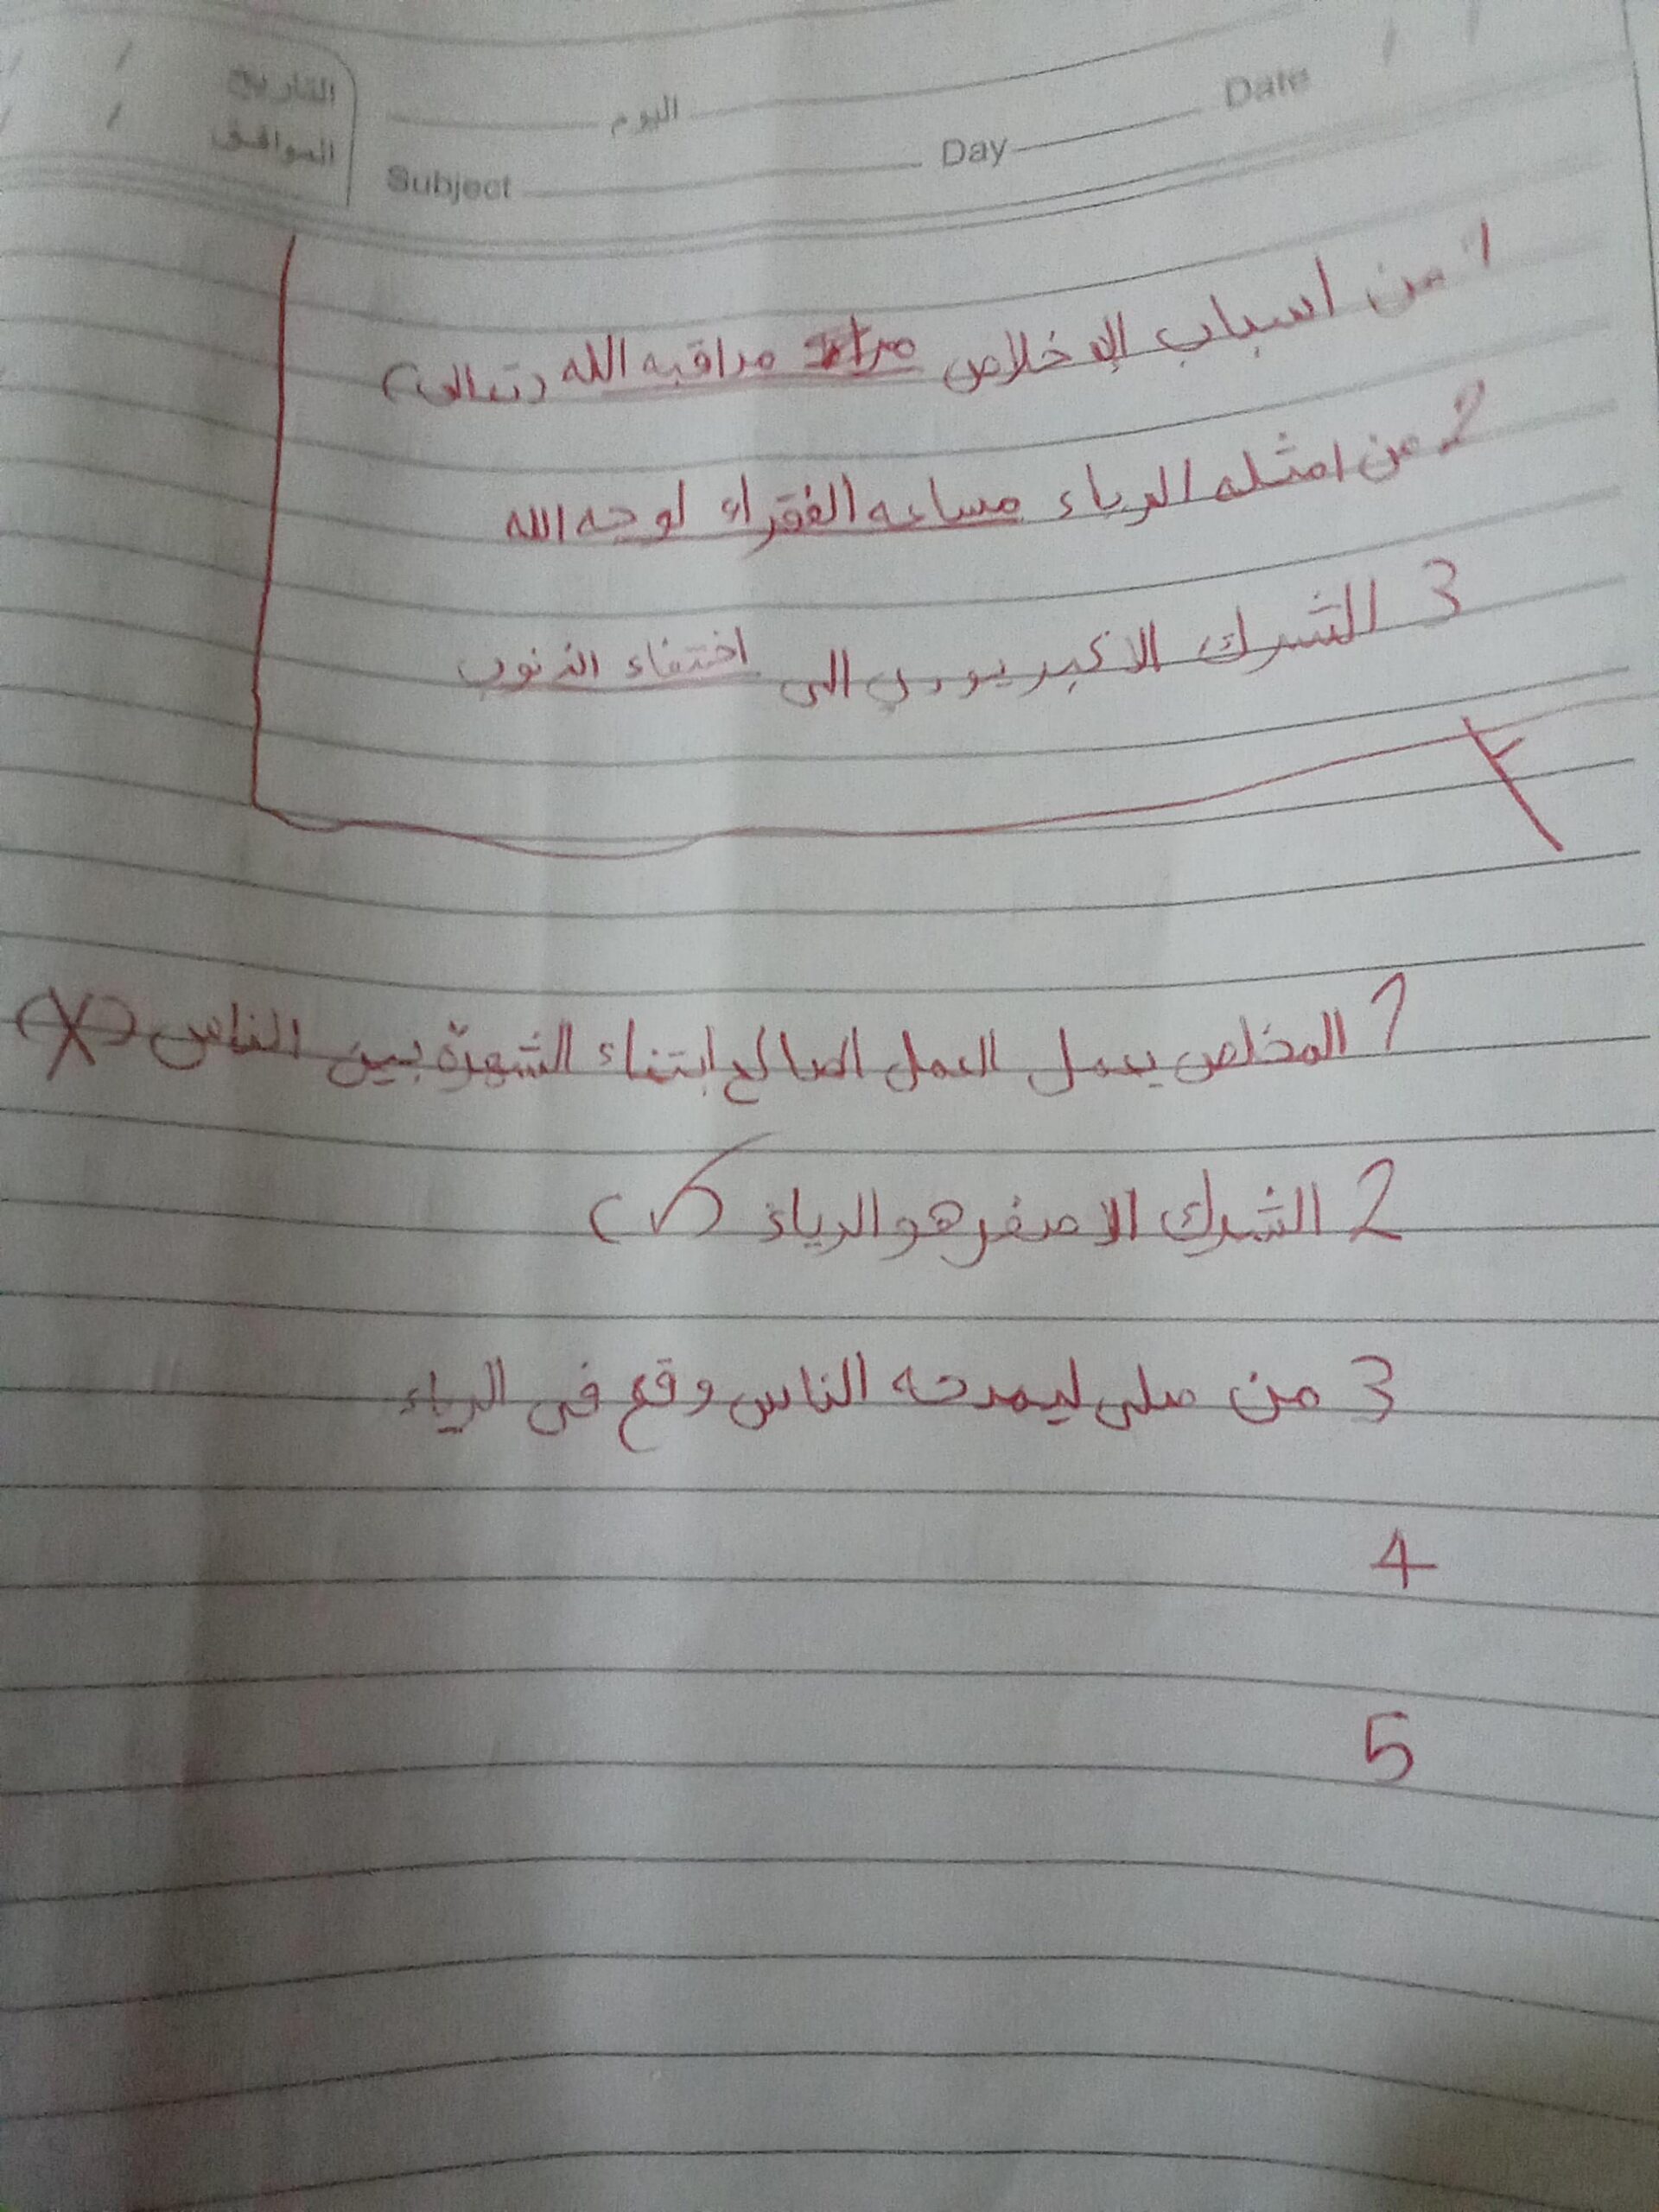 التاريخ
الموافق
اليوم
Subject Day Date
1 من اسباب الإخلاص مراقبه الله (تعالى)
2 من امثله الرياء مساعه الفقراء لوجه الله
3 الشرك الاكبر يودي الى اختفاء الذنوب
1 المخلص يعمل العمل الصالح ابتغاء الشهرة بين الناس (X)
2 الشرك الاصغر هو الرياء (✓)
3 من صلى ليمدحه الناس وقع في الرياء
4
5